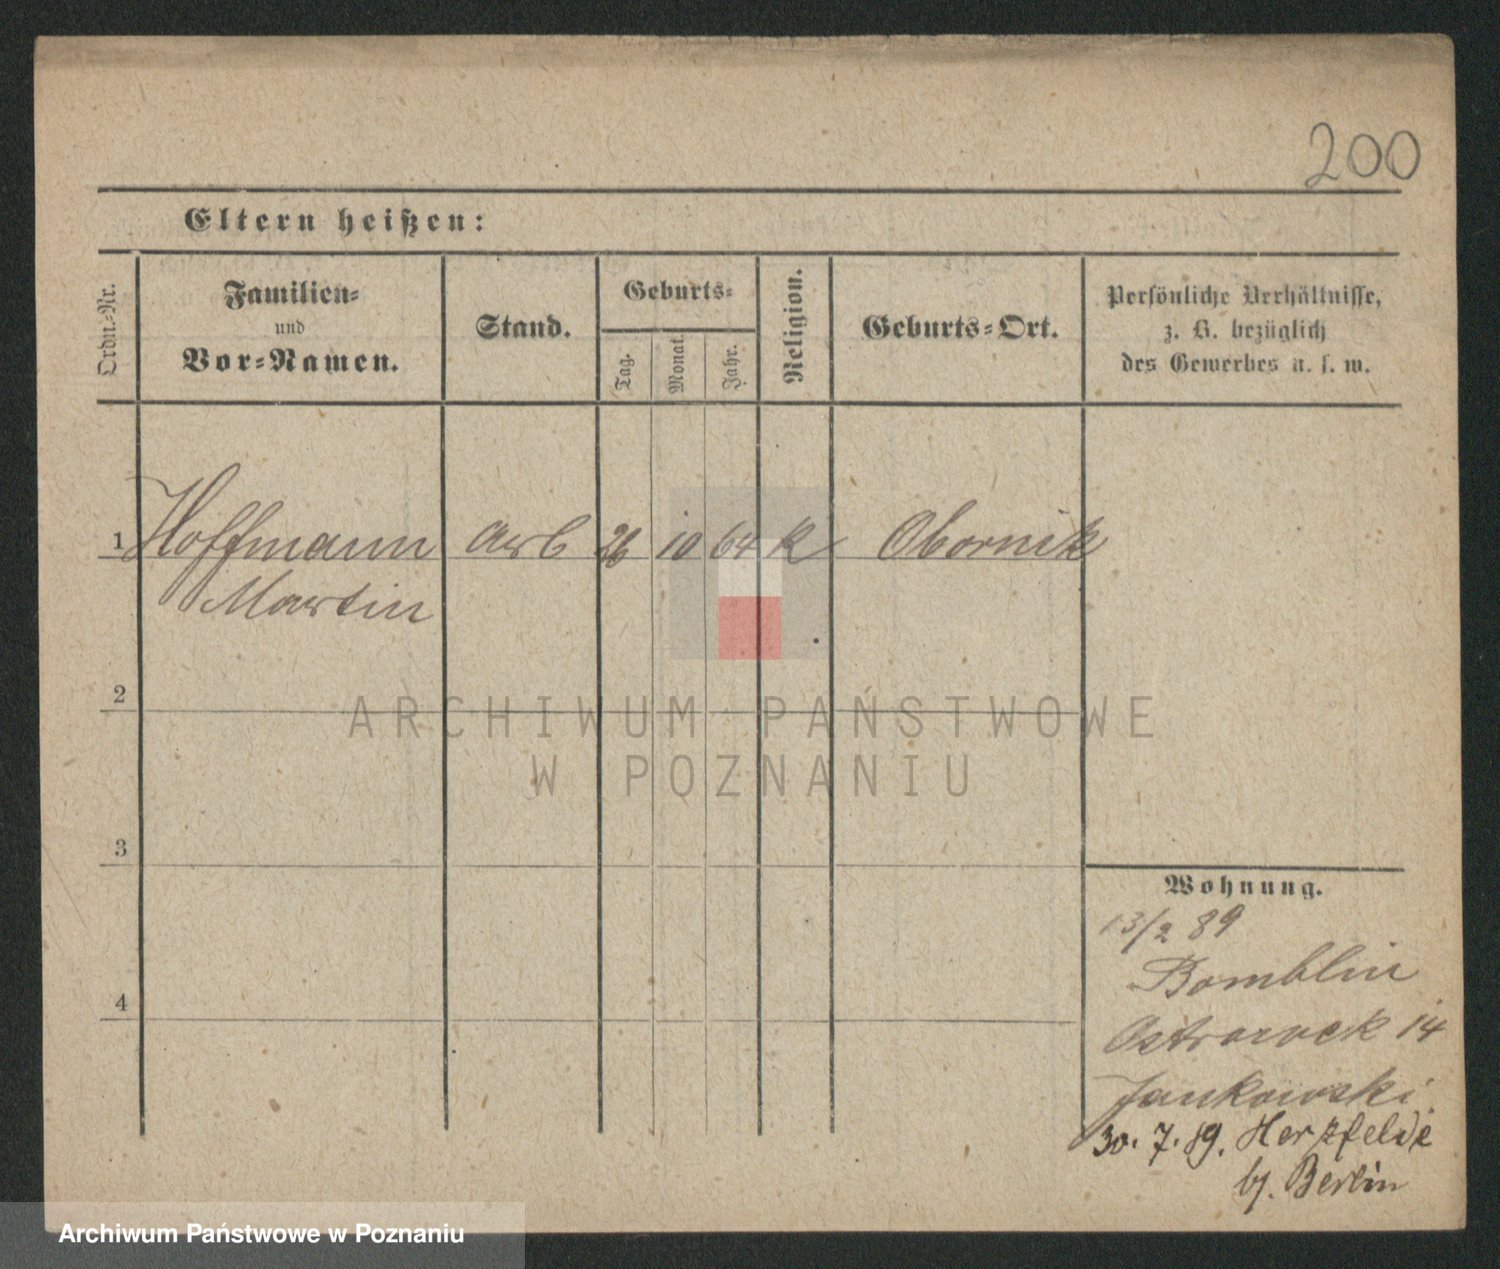 200
Eltern heißen:
Ordn.-Nr.
Familien-
und
Vor-Namen.
Stand.
Geburts-
Tag.
Monat.
Jahr.
Religion.
Geburts-Ort.
Persönliche Verhältnisse,
z. B. bezüglich
des Gewerbes u. s. w.
1 Hoffmann Arb 26 10 64 K Obornik
Martin
ARCHIWUM PAŃSTWOWE
W POZNANIU
2
3
4
Wohnung.
13/2 89
Bomblin
Ostrorock 14
Jankowski
30. 7. 89. Herzfelde
b/. Berlin
Archiwum Państwowe w Poznaniu